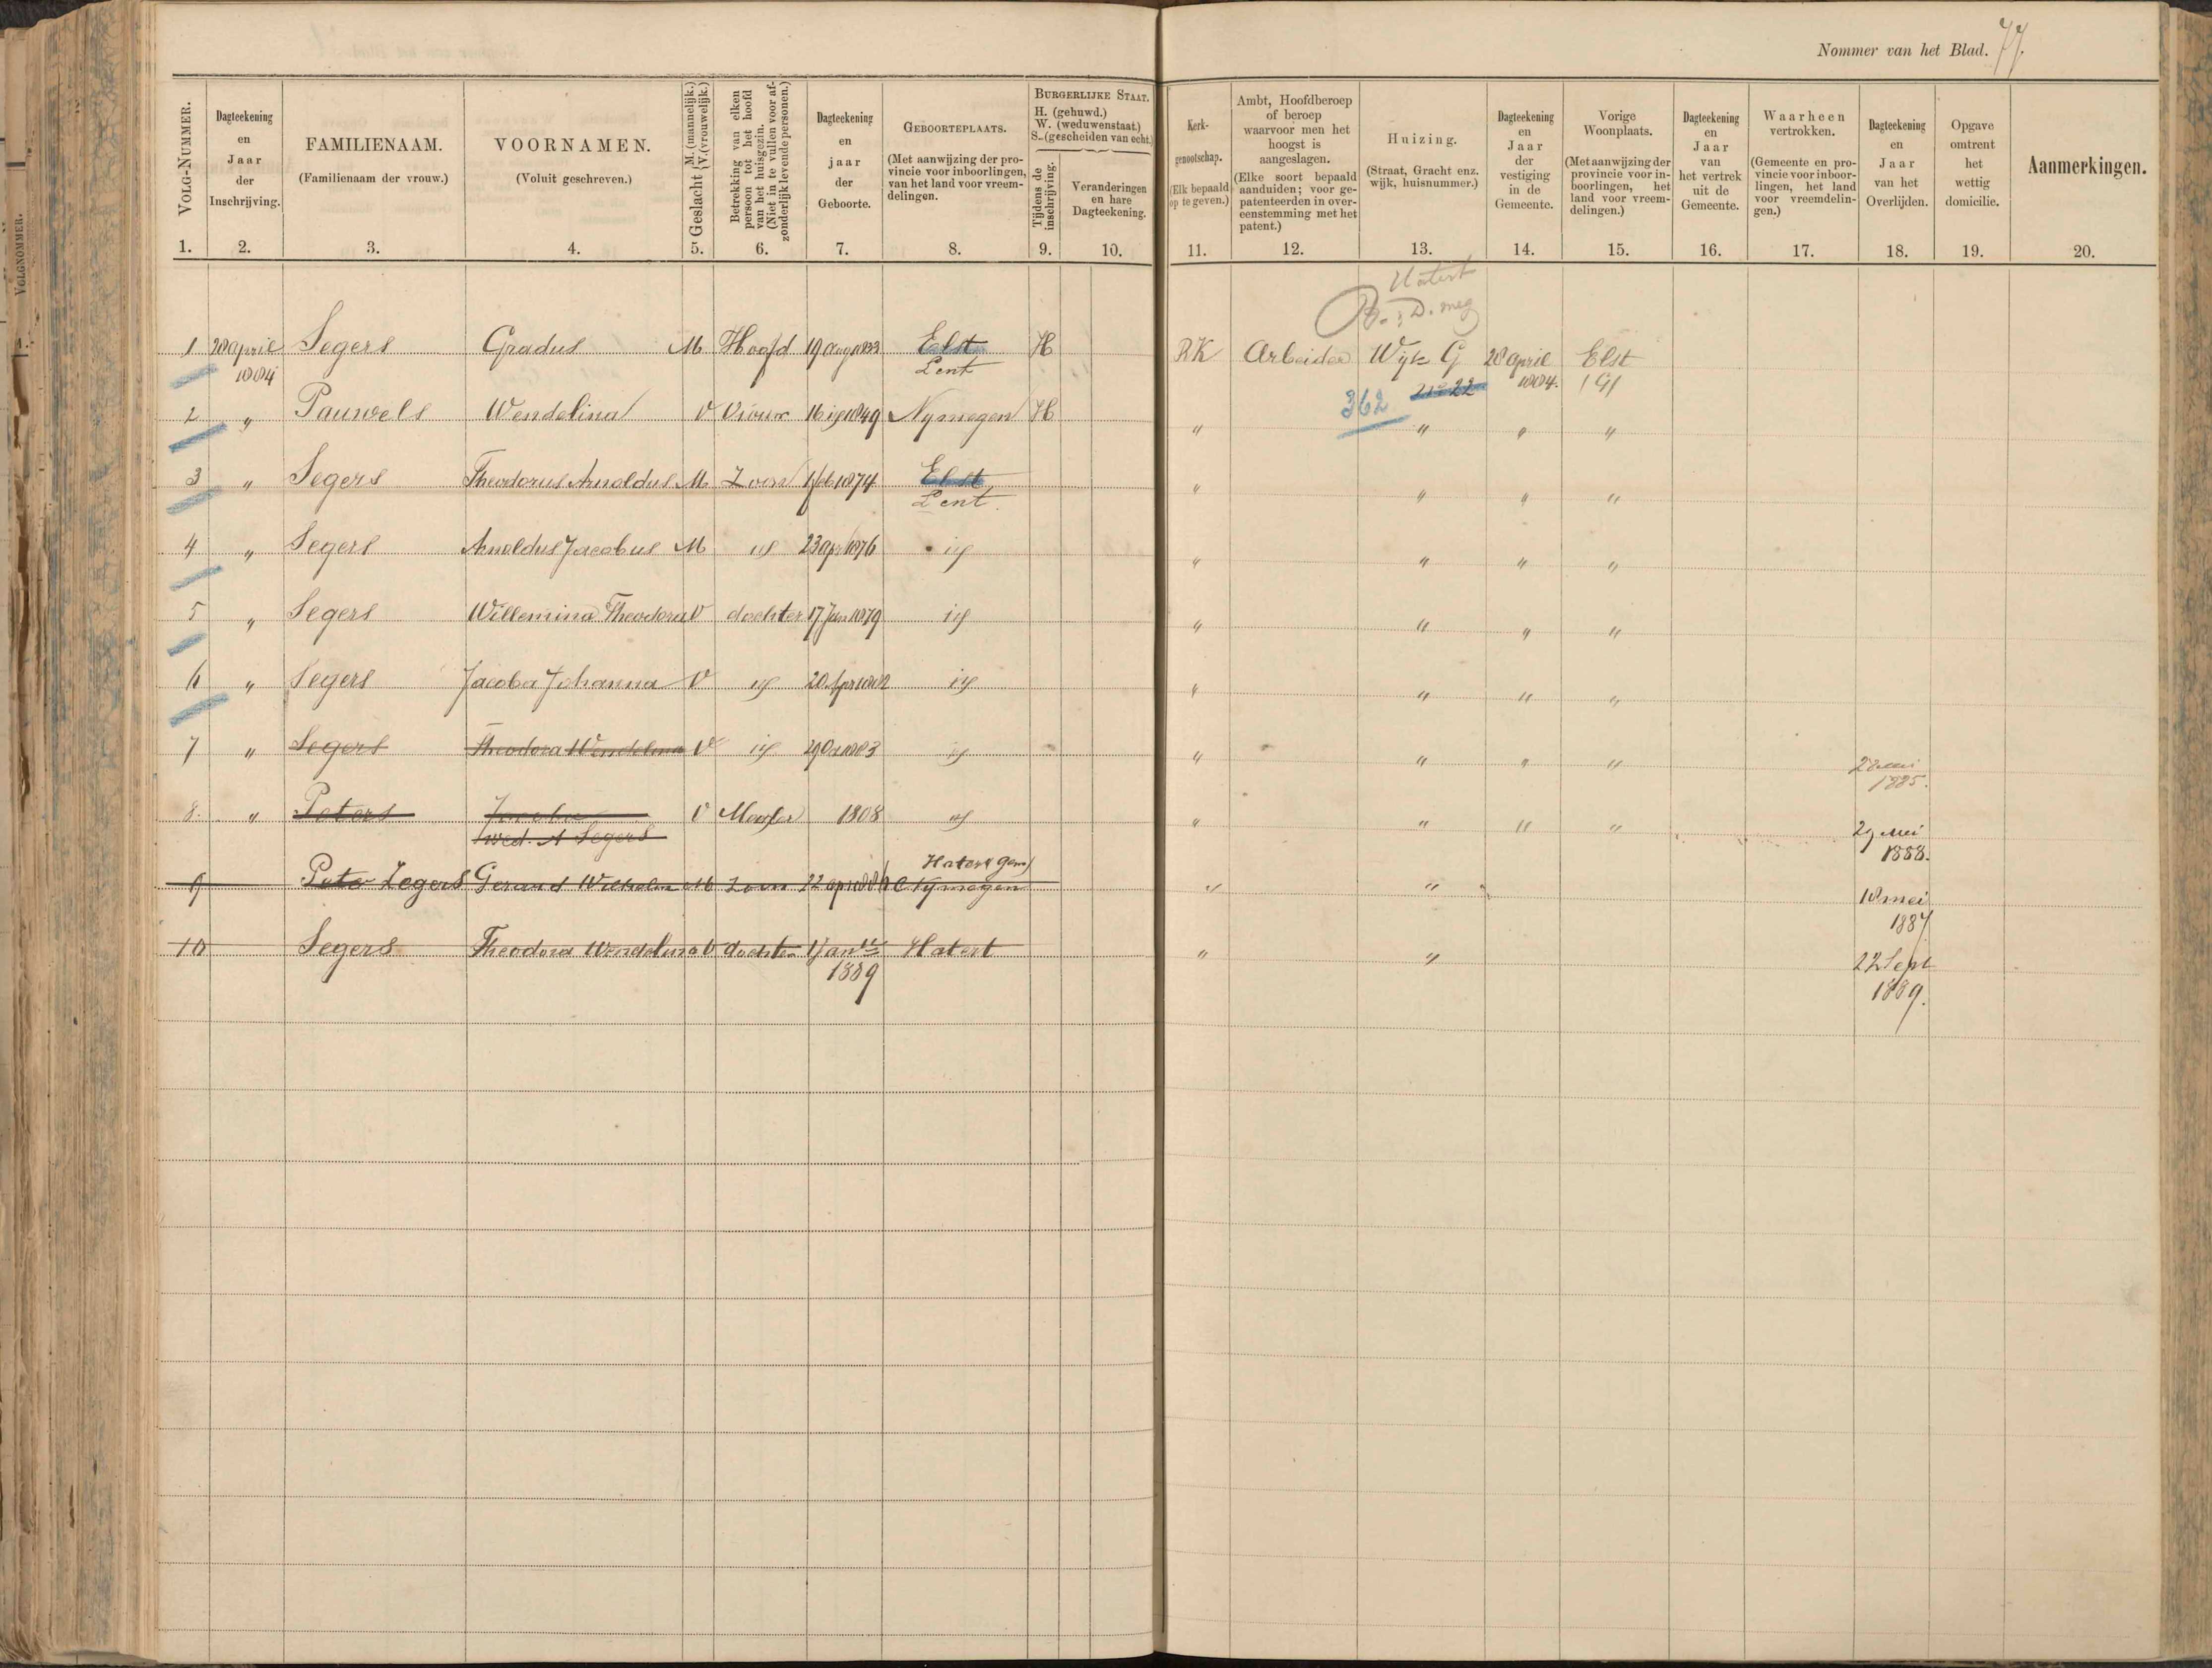 Nommer van het Blad. 77.
VOLG-NUMMER.
Dagteekening en Jaar der Inschrijving.
FAMILIENAAM. (Familienaam der vrouw.)
VOORNAMEN. (Voluit geschreven.)
Geslacht M. (mannelijk.) V. (vrouwelijk.)
Betrekking van elken persoon tot het hoofd van het huisgezin. (Niet in te vullen voor afzonderlijk levende personen.)
Dagteekening en jaar der Geboorte.
GEBOORTEPLAATS. (Met aanwijzing der provincie voor inboorlingen, van het land voor vreemdelingen.)
BURGERLIJKE STAAT. H. (gehuwd.) W. (weduwenstaat.) S. (gescheiden van echt.)
Tijdens de inschrijving.
Veranderingen en hare Dagteekening.
Kerkgenootschap. (Elk bepaald op te geven.)
Ambt, Hoofdberoep of beroep waarvoor men het hoogst is aangeslagen. (Elke soort bepaald aanduiden; voor gepatenteerden in overeenstemming met het patent.)
Huizing. (Straat, Gracht enz. wijk, huisnummer.)
Dagteekening en Jaar der vestiging in de Gemeente.
Vorige Woonplaats. (Met aanwijzing der provincie voor inboorlingen, het land voor vreemdelingen.)
Dagteekening en Jaar van het vertrek uit de Gemeente.
Waarheen vertrokken. (Gemeente en provincie voor inboorlingen, het land voor vreemdelingen.)
Dagteekening en Jaar van het Overlijden.
Opgave omtrent het wettig domicilie.
Aanmerkingen.
1. 2. 3. 4. 5. 6. 7. 8. 9. 10. 11. 12. 13. 14. 15. 16. 17. 18. 19. 20.
Hatert
1 28 april Segers Gradus M Hoofd 19 aug Elst H RK Arbeider Wijk G 28 april Elst
1884 Lent 22 1884. 191
362
2 " Pauwels Wendelina V Vrouw 16 1849 Nymegen H " " " "
3 " Segers Theodorus Arnoldus M Zoon 1 feb 1874 Elst " " " "
Lent.
4 " Segers Arnoldus Jacobus M id 23 apr 1876 id " " " "
5 " Segers Willemina Theodora V dochter 17 Jan 1879 id " " " "
6 " Segers Jacoba Johanna V id 20 Apr 1882 id " " " "
7 " Segers Theodora Wendelina V id 29 Oct 1883 id " " " " 2 mei
1885.
8. " Peters Jacoba V Moeder 1808 id " " " " 29 Mei
wed. A Segers 1888.
Hatert gem
9 Peter Zegers Gerard Wilhelm M Zoon 22 apr Nymegen " " 18 mei
1887
10 Segers Theodora Wendelina V dochter 1 Jan Hatert " " 22 Sept
1889 1889.